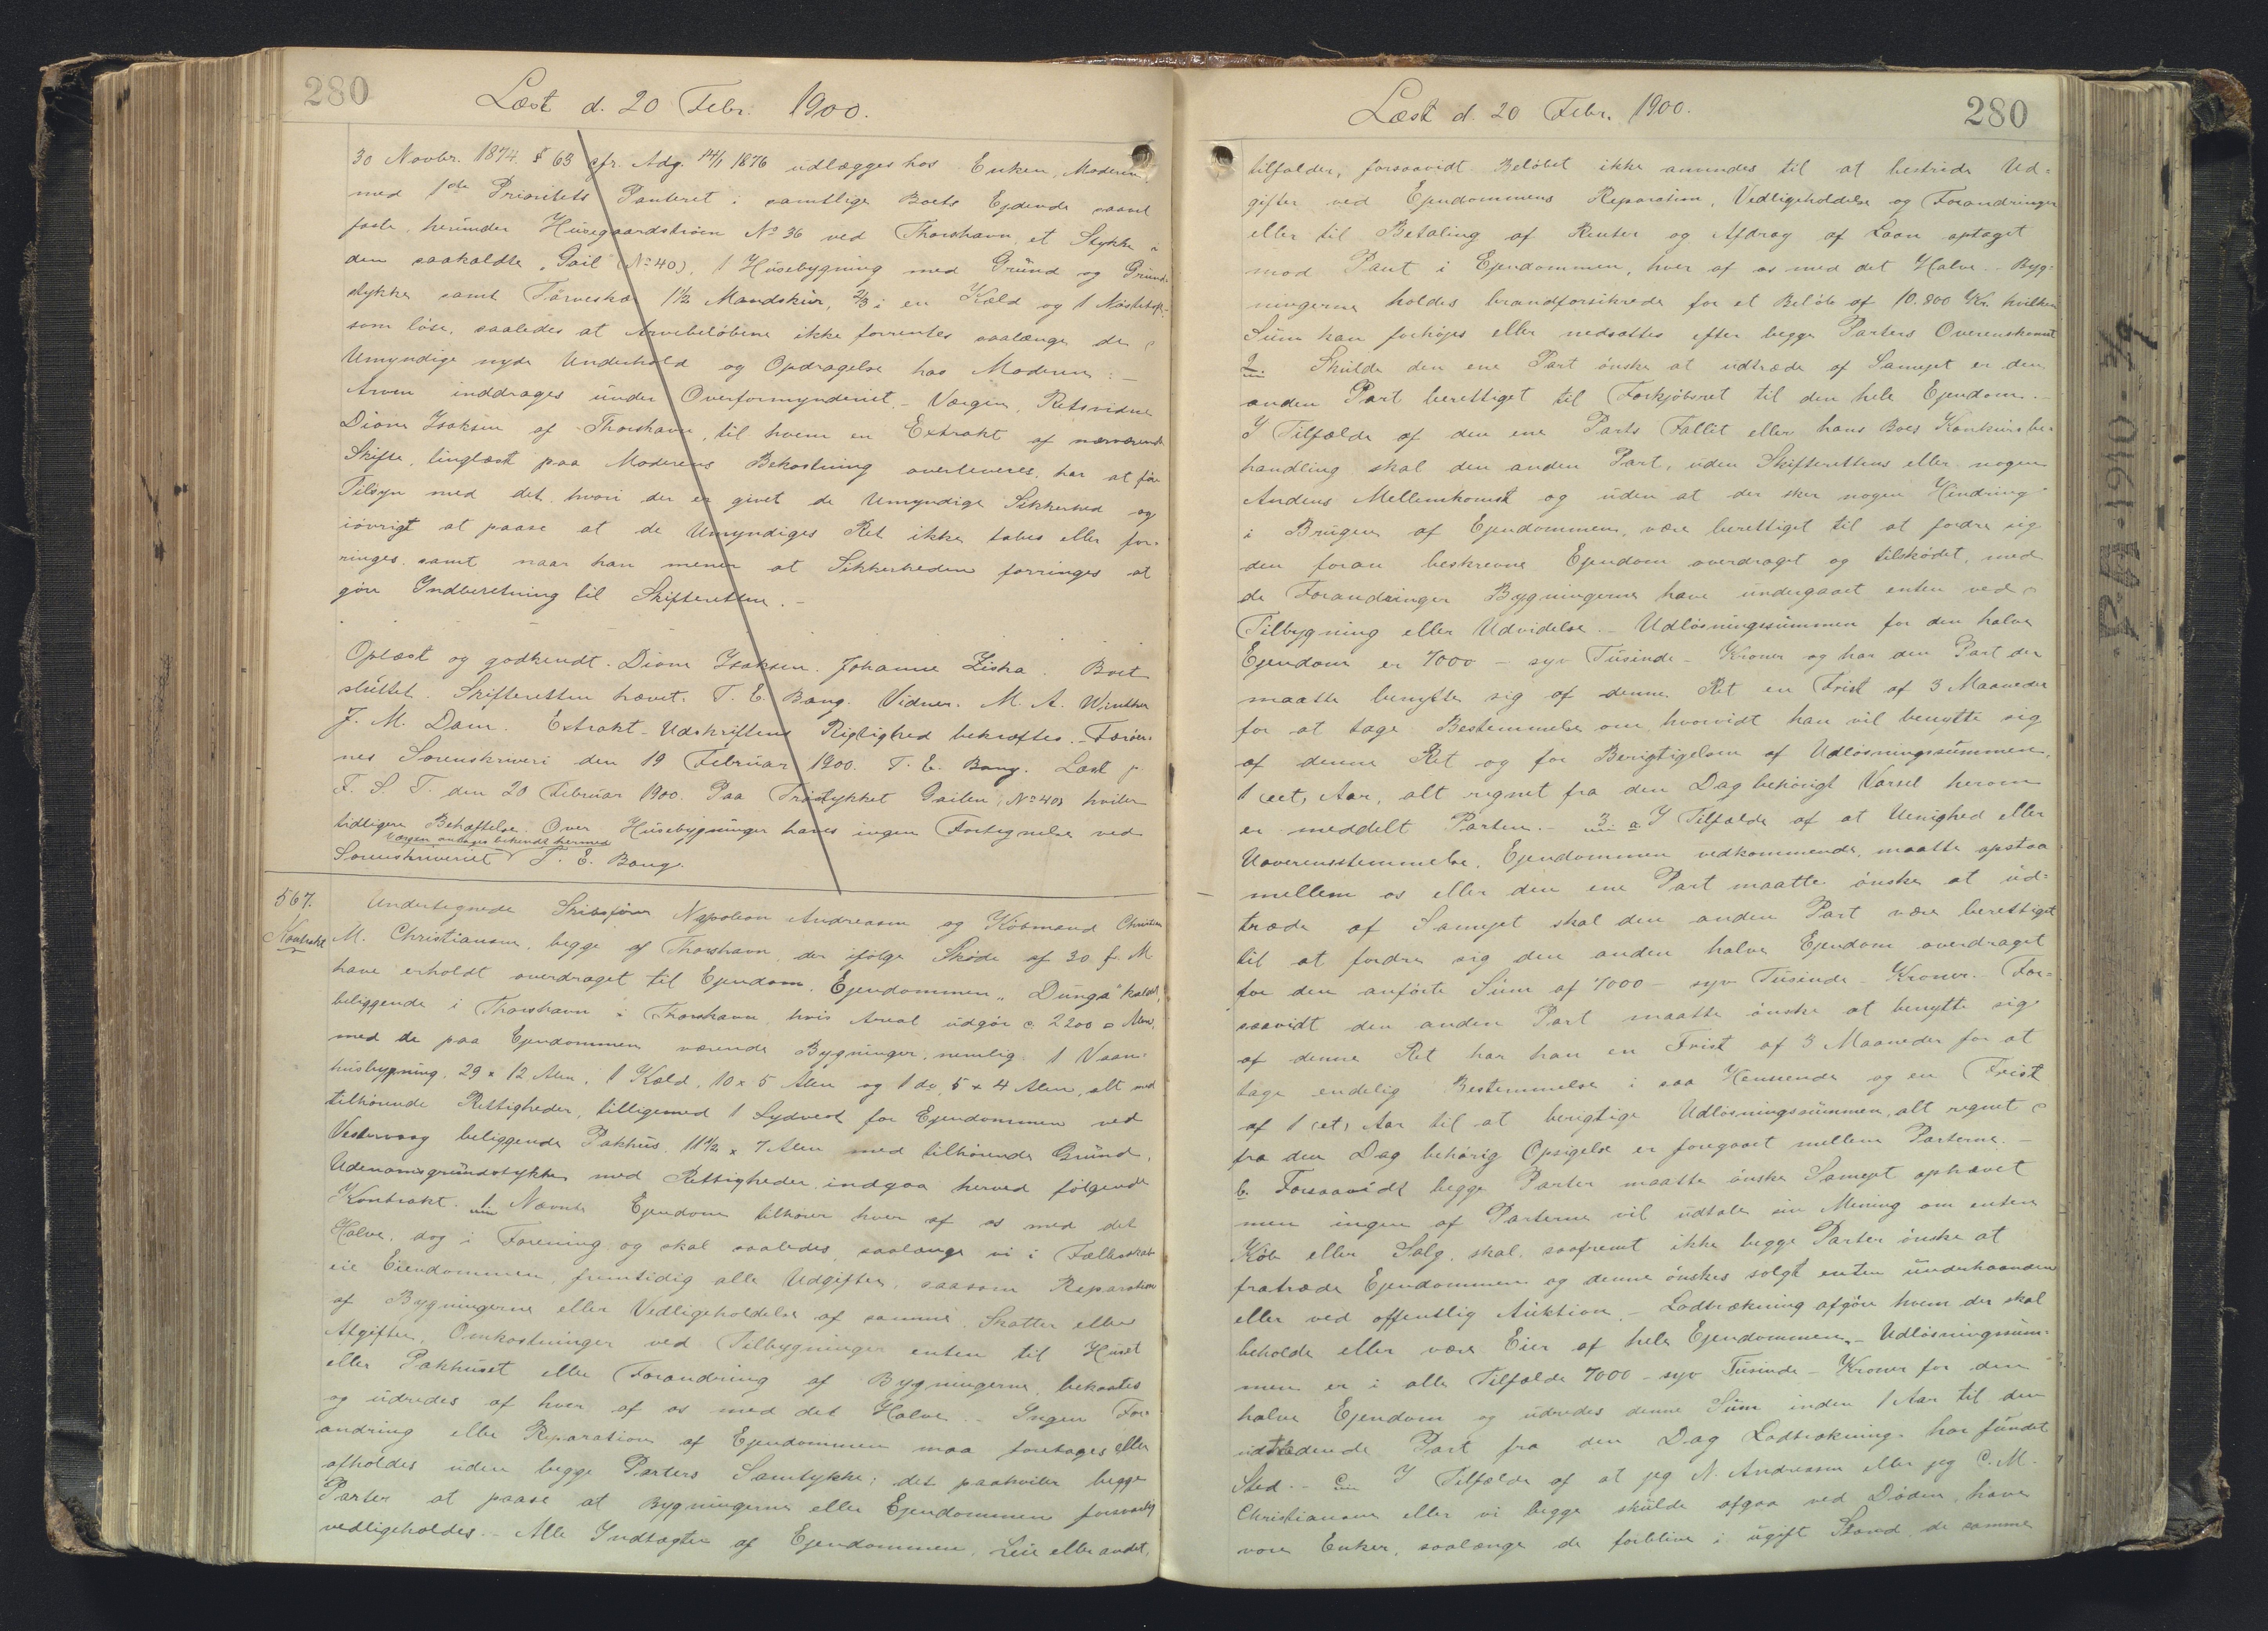 280
Læst d. 20 Febr. 1900.
30 Novbr. 1874 § 63 cfr. Adg. 14/1 1876 udlægges hos Enken, Moderen
med 1ste Prioritets Panteret i samtlige Boets Ejdende saavel
faste, herunder Husegaardstroen No 36 ved Thorshavn, et Stykke i
den saakaldte "Gail" (No 40), 1 Husebygning med Grund og Grund-
stykke samt Tørveskær 1½ Mandskur, 2/3 i en Kæld og 1
som løse, saaledes at Arvebeløbene ikke forrentes saalænge de
Umyndige nyde Underhold og Opdragelse hos Moderen: —
Arven inddrages under Overformynderiet. – Værgen, Retsvidne
Dione Isaksen af Thorshavn, til hvem en Extrakt af nærværende
Skifte, tinglæst paa Moderens Bekostning overleveres, har at føre
Tilsyn med det hvori der er givet de Umyndige Sikkerhed og
iøvrigt at paase at de Umyndiges Ret ikke tabes eller for-
ringes samt naar han mener at Sikkerheden forringes at
gøre Indberetning til Skifteretten. –
Oplæst og godkendt. Dione Isaksen. Johanne Ziska. Boet
sluttet. Skifteretten hævet. T. E. Bang. Vidner. M. A. Winther
J. M. Dam. Extrakt-Udskriftens Rigtighed bekræftes. – Færøer-
nes Sorenskriveri den 19 Februar 1900. T. E. Bang. Læst p.
F. S. T. den 20 Februar 1900. Paa Træstykket Gailen (No 40) hviler
tidligere Behæftelse. Over Husebygninger haves ingen Fortegnelse ved
Værgen antages bekendt hermed
Sorenskriveriet T. E. Bang.
567. Undertegnede Skibsfører Napoleon Andreasen og Købmand Christian
Kontrakt M. Christiansen, begge af Thorshavn, der ifølge Skøde af 30 f. M.
have erholdt overdraget til Ejendom, Ejendommen "Dunga" kaldet,
beliggende i Thorshavn i Thorshavn, hvis Areal udgør c. 2200 □ Alen,
med de paa Ejendommen værende Bygninger, nemlig 1 Vaan-
husbygning 29 x 12 Alen, 1 Kæld, 10 x 5 Alen og 1 do, 5 x 4 Alen, alt med
tilhørende Rettigheder, tilligemed 1 Sydvest for Ejendommen ved
Vestervaag beliggende Pakhus, 11½ x 7 Alen med tilhørende Grund,
Udenomsgrundstykke med Rettigheder, indgaa herved følgende
Kontrakt. 1. Nævnte Ejendom tilhører hver af os med det
Halve, dog i Forening og skal saaledes, saalænge vi i Fællesskab
eie Eiendommen, fremtidig alle Udgifter, saasom Reparation
af Bygningerne eller Vedligeholdelse af samme, Skatter eller
Afgifter, Omkostninger ved Tilbygninger enten til Huset
eller Pakhuset eller Forandring af Bygningerne, bekostes
og udredes af hver af os med det Halve. – Ingen For-
andring eller Reparation af Ejendommen maa foretages eller
afholdes uden begge Parters Samtykke; det paahviler begge
Parter at paase at Bygningerne eller Ejendommen forsvarlig
vedligeholdes. – Alle Indtægter af Ejendommen, Leie eller andet,
Læst d. 20 Febr. 1900.
280
tilfalder, forsaavidt Beløbet ikke anvendes til at bestride Ud-
gifter ved Ejendommens Reparation, Vedligeholdelse og Forandringer
eller til Betaling af Renter og Afdrag af Laan optaget
mod Pant i Ejendommen, hver af os med det Halve. – Byg-
ningerne holdes brandforsikrede for et Beløb af 10.800 Kr. hvilken
Sum kan forhøjes eller nedsættes efter begge Parters Overenskomst
2. Skulde den ene Part ønske at udtræde af Samejet er den
anden Part berettiget til Forkjøbsret til den hele Ejendom. –
I Tilfælde af den ene Parts Fallit eller hans Boes Konkursbe-
handling skal den anden Part, uden Skifterettens eller nogen
Andens Mellemkomst og uden at der sker nogen Hindring
i Brugen af Ejendommen, være berettiget til at fordre sig
den foran beskrevne Ejendom overdraget og tilskødet, med
de Forandringer Bygningerne have undergaaet enten ved
Tilbygning eller Udvidelse. – Udløsningssummen for den halve
Ejendom er 7000 – syv Tusinde – Kroner og har den Part der
maatte benytte sig af denne Ret en Frist af 3 Maaneder
for at tage Bestemmelse om hvorvidt han vil benytte sig
af denne Ret og for Berigtigelsen af Udløsningssummen,
1 (eet) Aar, alt regnet fra den Dag behørigt Varsel herom
er meddelt Parten. – 3. a I Tilfælde af at Uenighed eller
Uoverensstemmelse, Ejendommen vedkommende, maatte opstaa
mellem os eller den ene Part maatte ønske at ud-
træde af Samejet skal den anden Part være berettiget
til at fordre sig den anden halve Ejendom overdraget
for den anførte Sum af 7000 – syv Tusinde – Kroner. – For-
saavidt den anden Part maatte ønske at benytte sig
af denne Ret har han en Frist af 3 Maaneder for at
tage endelig Bestemmelse i saa Henseende og en Frist
af 1 (et) Aar til at berigtige Udløsningssummen, alt regnet
fra den Dag behørig Opsigelse er foregaaet mellem Parterne. –
b. Forsaavidt begge Parter maatte ønske Samejet ophævet
men ingen af Parterne vil udtale sin Mening om enten
Køb eller Salg, skal, saafremt ikke begge Parter ønske at
fratræde Ejendommen og denne ønskes solgt enten underhaanden
eller ved offentlig Auktion, – Lodtrækning afgøre hvem der skal
beholde eller være Eier af hele Ejendommen. – Udløsningssum-
men er i alle Tilfælde 7000 – syv Tusinde – Kroner for den
halve Ejendom og udredes denne Sum inden 1 Aar til den
udtrædende Part fra den Dag Lodtrækning har fundet
Sted. – c. I Tilfælde af at jeg N. Andreasen eller jeg C. M.
Christiansen eller vi begge skulde afgaa ved Døden, have
vore Enker, saalænge de forblive i ugift Stand, de samme